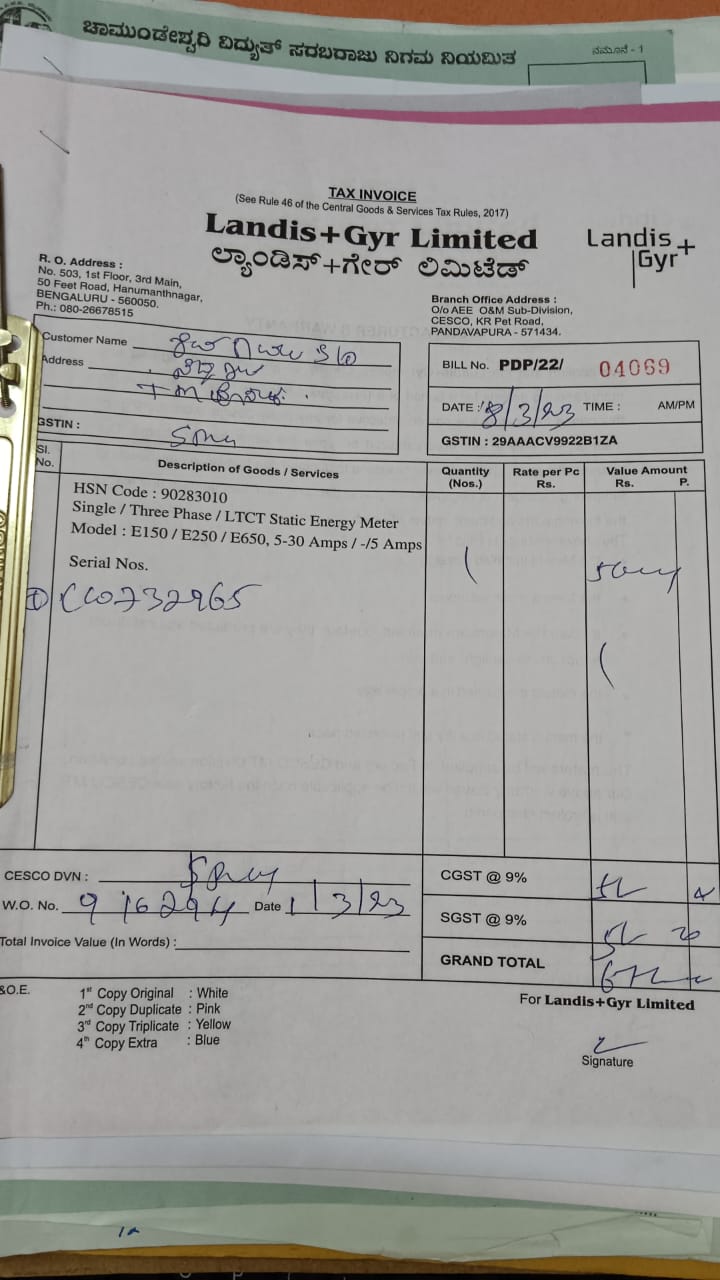 ಚಾಮುಂಡೇಶ್ವರಿ ವಿದ್ಯುತ್ ಸರಬರಾಜು ನಿಗಮ ನಿಯಮಿತ
ನಮೂನೆ - 1
TAX INVOICE
(See Rule 46 of the Central Goods & Services Tax Rules, 2017)
Landis+Gyr Limited
ಲ್ಯಾಂಡಿಸ್+ಗೇರ್ ಲಿಮಿಟೆಡ್
Landis+
Gyr
R. O. Address :
No. 503, 1st Floor, 3rd Main,
50 Feet Road, Hanumanthnagar,
BENGALURU - 560050.
Ph.: 080-26678515
Branch Office Address :
O/o AEE O&M Sub-Division,
CESCO, KR Pet Road,
PANDAVAPURA - 571434.
Customer Name
Address
GSTIN :
BILL No. PDP/22/ 04069
DATE : 8/3/23 TIME : AM/PM
GSTIN : 29AAACV9922B1ZA
Sl. No. Description of Goods / Services Quantity (Nos.) Rate per Pc Rs. Value Amount Rs. P.
HSN Code : 90283010
Single / Three Phase / LTCT Static Energy Meter
Model : E150 / E250 / E650, 5-30 Amps / -/5 Amps
Serial Nos.
CESCO DVN :
W.O. No. 916294 Date 1/3/23
Total Invoice Value (In Words) :
CGST @ 9%
SGST @ 9%
GRAND TOTAL
&O.E.
1st Copy Original : White
2nd Copy Duplicate : Pink
3rd Copy Triplicate : Yellow
4th Copy Extra : Blue
For Landis+Gyr Limited
Signature